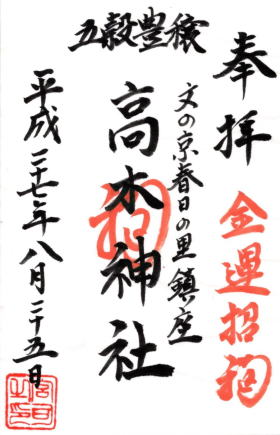 奉拝
金運招祠
五穀豊穣
文の京春日の里鎮座
高木神社
祠
平成二十七年八月二十五日